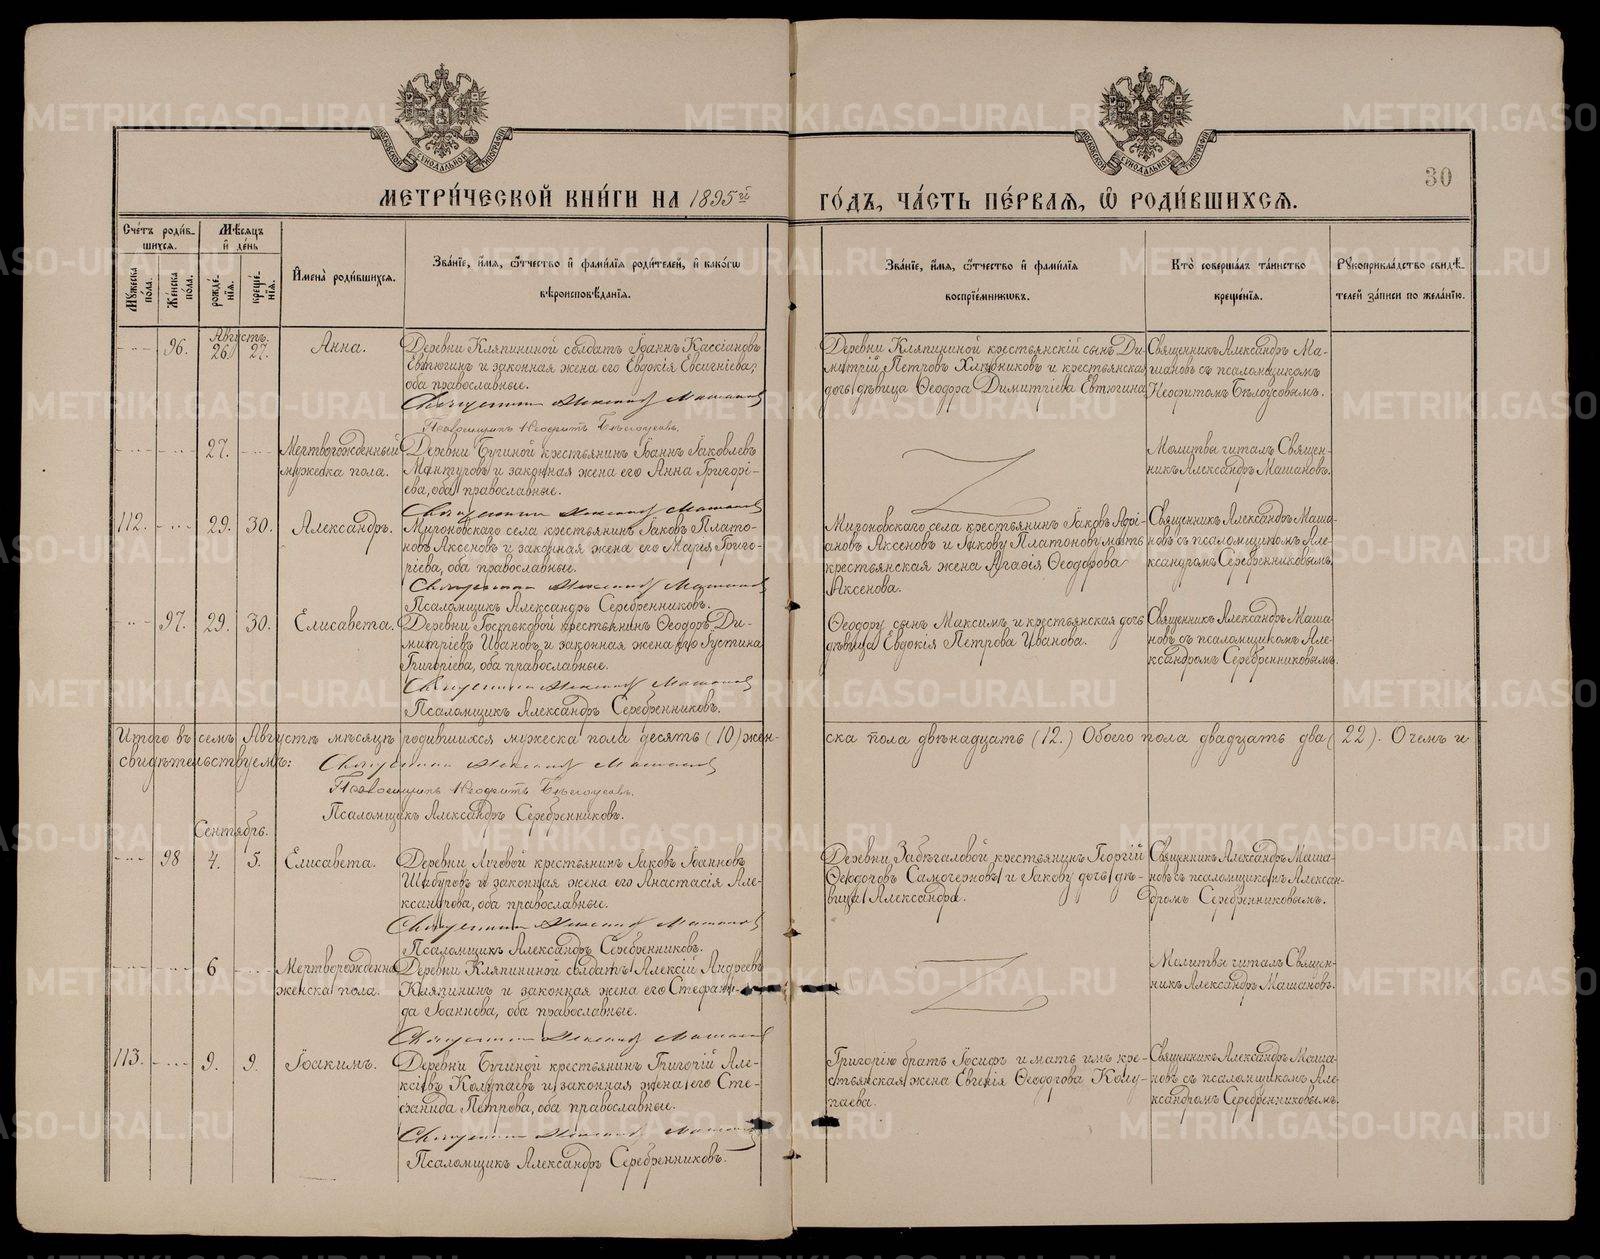 30
МЕТРИ́ЧЕСКОЙ КНИ́ГИ НА 1895й
ГО́ДЪ, ЧА́СТЬ ПЕ́РВАѦ, Ѡ҆ РОДИ́ВШИХСѦ.
Сче́тъ роди́в-
шихсѧ.
Мꙋжеска по́ла.
Же́нска по́ла.
Мѣ́сѧцъ и҆ де́нь
рожде́-
нїѧ.
креще́-
нїѧ.
И҆мена̀ роди́вшихсѧ.
Зва́нїе, и҆́мѧ, ѻ҆́тчество и҆ фамилїѧ роди́телей, и҆ како́гѡ
вѣроисповѣ́данїѧ.
Зва́нїе, и҆́мѧ, ѻ҆́тчество и҆ фамилїѧ
воспрїе́мникѡвъ.
Кто̀ соверша́лъ та́инство
креще́нїѧ.
Рꙋкоприкла́дство свидѣ́-
телей за́писи по жела́нїю.
Августъ.
96. 26. 27. Анна.
Деревни Кляпининой солдатъ Іоаннъ Кассіановъ
Евтюгинъ и законная жена его Евдокія Евсигніева,
оба православные.
Священникъ Александръ Машановъ
Псаломщикъ Неофитъ Бѣлоусовъ.
Деревни Кляпининой крестьянскій сынъ Ди-
митрій Петровъ Хлѣбниковъ и крестьянская
дочь дѣвица Ѳеодора Димитріева Евтюгина
Священникъ Александръ Ма-
шановъ съ псаломщикомъ
Неофитомъ Бѣлоусовымъ.
27. Мертворожденный
мужеска пола.
Деревни Бучиной крестьянинъ Іоаннъ Іаковлевъ
Мантуровъ и законная жена его Анна Григорі-
ева, оба православные.
Священникъ Александръ Машановъ
Молитвы читалъ Священ-
никъ Александръ Машановъ.
112. 29. 30. Александръ.
Мироновскаго села крестьянинъ Іаковъ Плато-
новъ Аксеновъ и законная жена его Марія Григо-
ріева, оба православные.
Священникъ Александръ Машановъ
Псаломщикъ Александръ Серебренниковъ.
Мироновскаго села крестьянинъ Іаковъ Адрі-
ановъ Аксеновъ и Іакову Платонову мать
крестьянская жена Агаѳія Ѳеодорова
Аксенова.
Священникъ Александръ Маша-
новъ съ псаломщикомъ Але-
ксандромъ Серебренниковымъ.
97. 29. 30. Елисавета.
Деревни Гостьковой крестьянинъ Ѳеодоръ Ди-
митріевъ Ивановъ и законная жена его Іустина
Григоріева, оба православные.
Священникъ Александръ Машановъ
Псаломщикъ Александръ Серебренниковъ.
Ѳеодору сынъ Максимъ и крестьянская дочь
дѣвица Евдокія Петрова Иванова.
Священникъ Александръ Маша-
новъ съ псаломщикомъ Але-
ксандромъ Серебренниковымъ.
Итого въ семъ Августѣ мѣсяцѣ родившихся мужеска пола десять (10) жен-
ска пола двѣнадцать (12.) Обоего пола двадцать два (22). О чемъ и
свидѣтельствуемъ:
Священникъ Александръ Машановъ
Псаломщикъ Неофитъ Бѣлоусовъ.
Псаломщикъ Александръ Серебренниковъ.
Сентябрь.
98 4. 5. Елисавета.
Деревни Луговой крестьянинъ Іаковъ Іоанновъ
Шабуровъ и законная жена его Анастасія Але-
ксандрова, оба православные.
Священникъ Александръ Машановъ
Псаломщикъ Александръ Серебренниковъ.
Деревни Забѣгаловой крестьянинъ Георгій
Ѳеодоровъ Самочерновъ и Іакову дочь дѣ-
вица Александра.
Священникъ Александръ Маша-
новъ съ псаломщикомъ Алексан-
дромъ Серебренниковымъ.
6 Мертворожденна
женска пола.
Деревни Кляпининой солдатъ Алексій Андреевъ
Кляпининъ и законная жена его Стефани-
да Іоаннова, оба православные.
Священникъ Александръ Машановъ
Молитвы читалъ Священ-
никъ Александръ Машановъ.
113. 9. 9. Іоакимъ.
Деревни Бучиной крестьянинъ Григорій Але-
ксіевъ Колупаевъ и законная жена его Сте-
фанида Петрова, оба православные.
Священникъ Александръ Машановъ
Псаломщикъ Александръ Серебренниковъ.
Григорію братъ Іосифъ и мать имъ кре-
стьянская жена Евгенія Ѳеодорова Колу-
паева.
Священникъ Александръ Маша-
новъ съ псаломщикомъ Але-
ксандромъ Серебренниковымъ.
METRIKI.GASO-URAL.RU